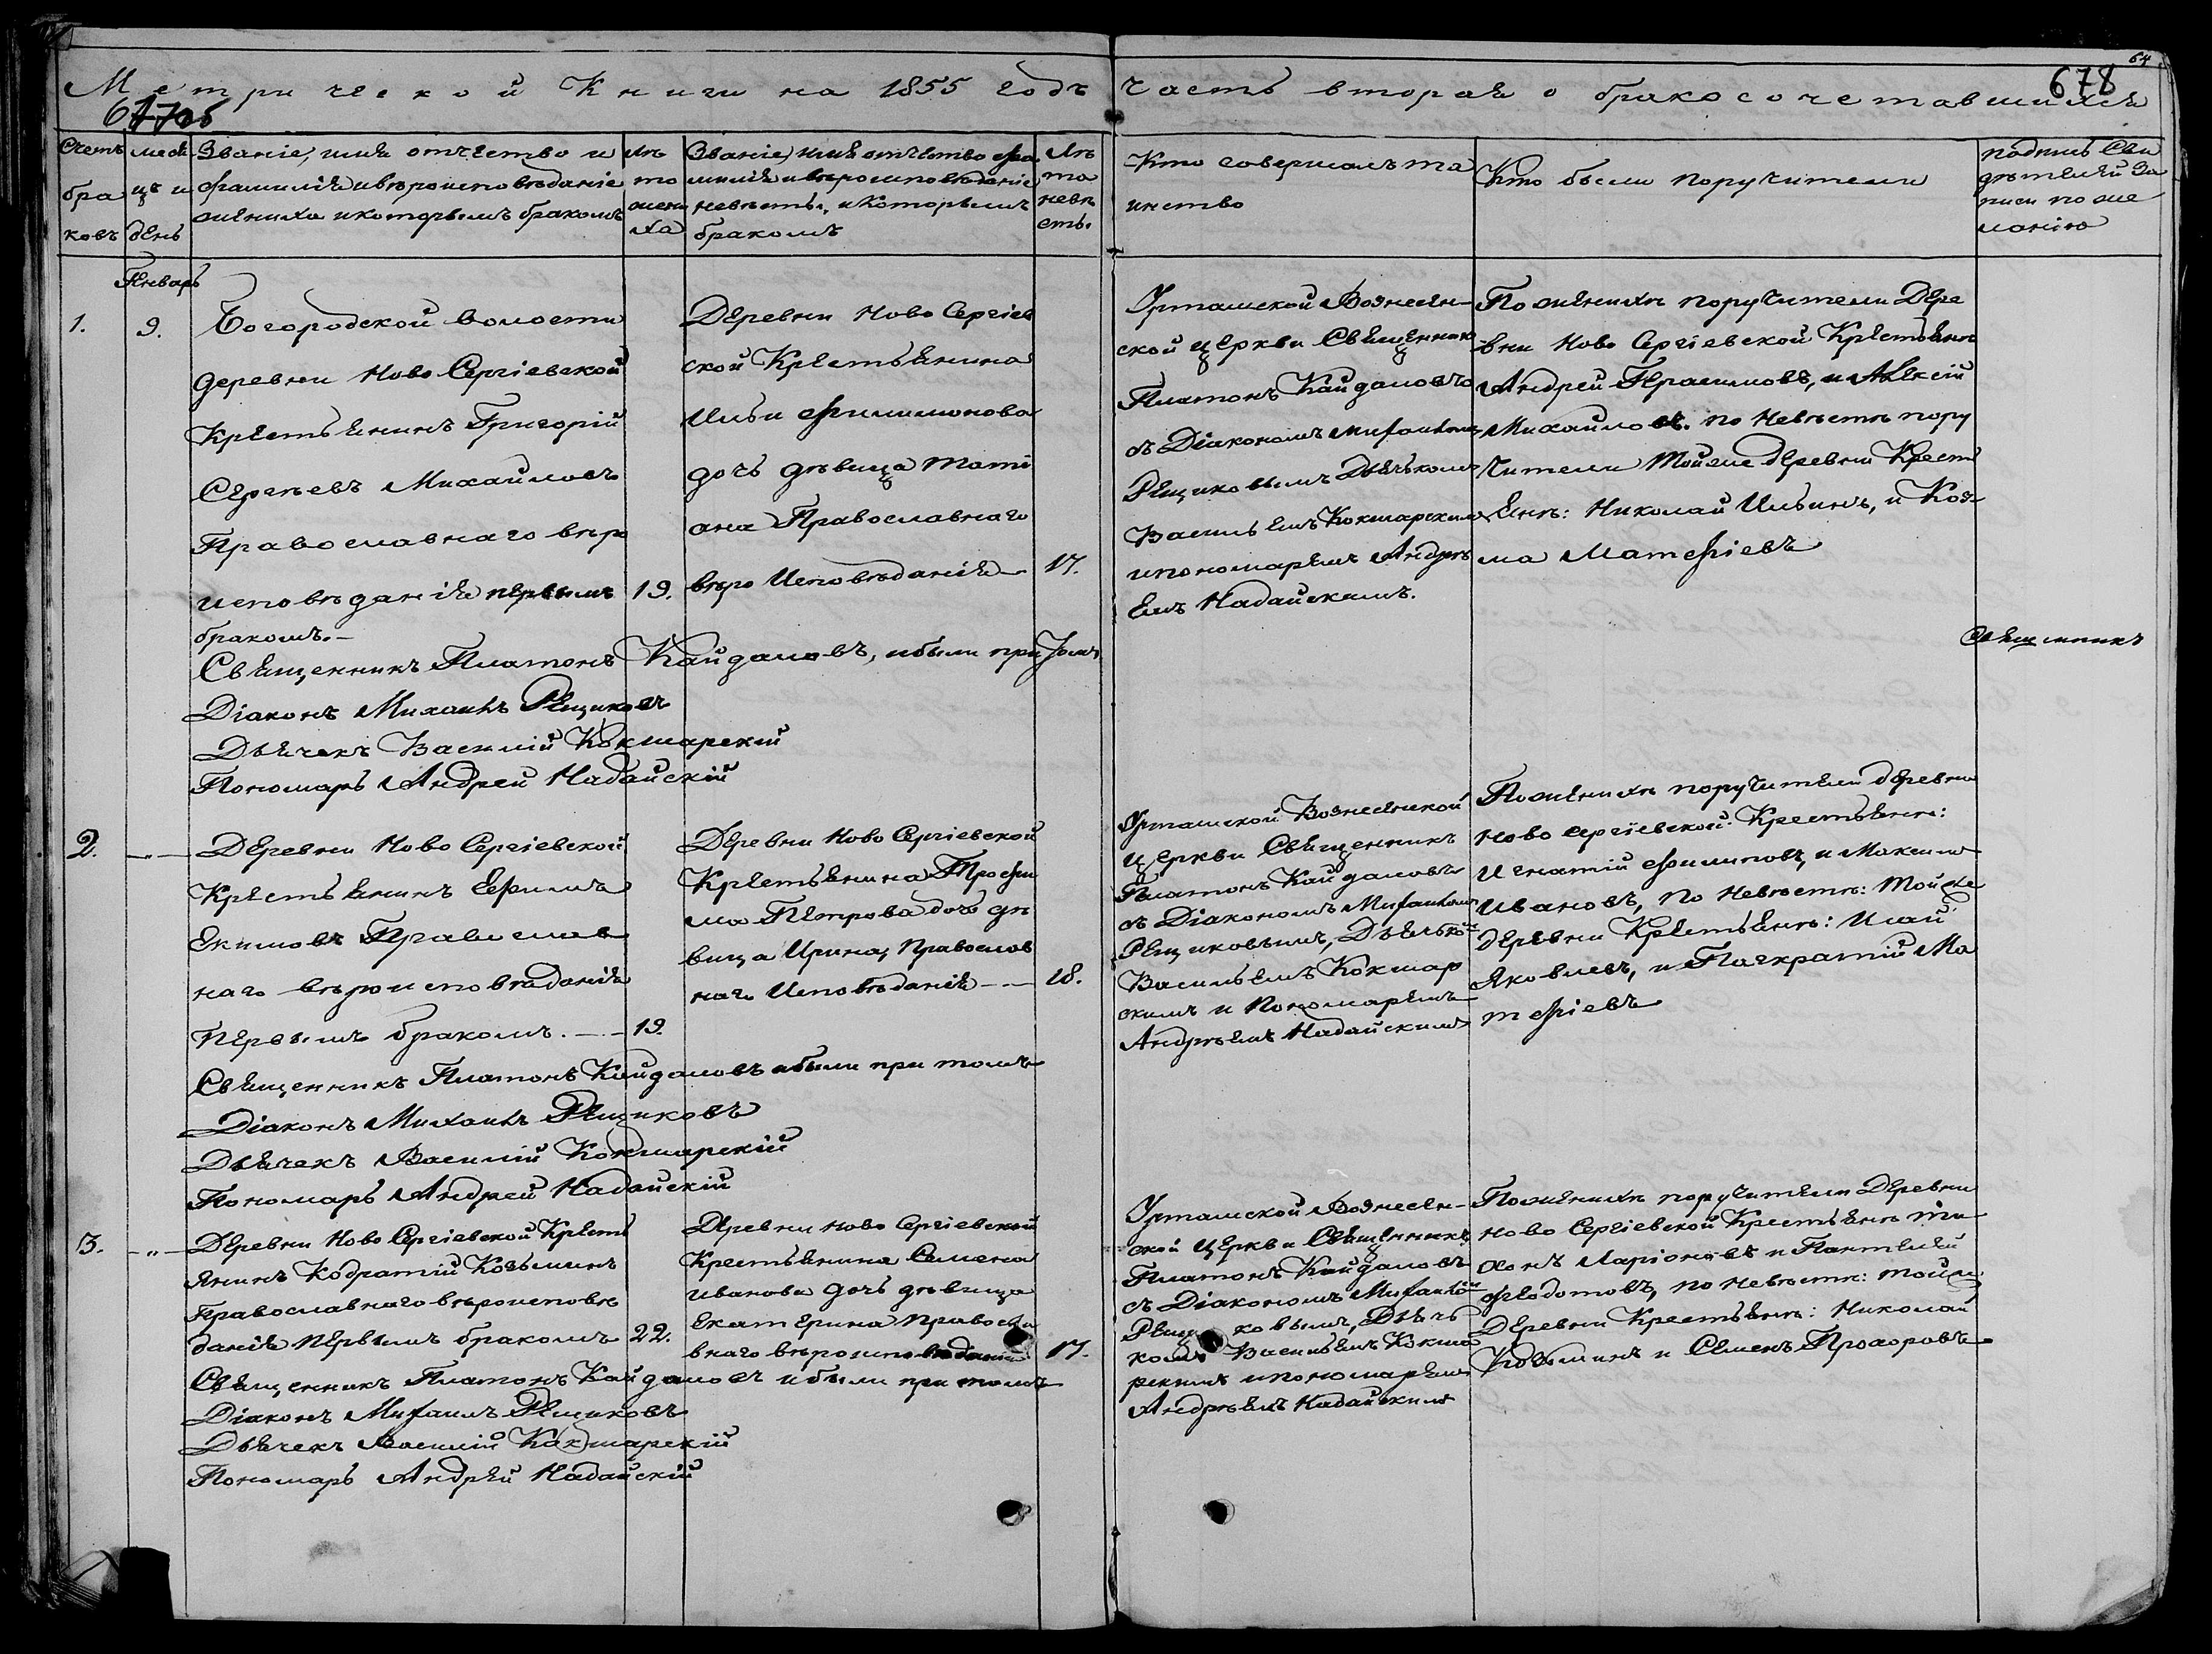 64
Метрической Книги на 1855 годъ часть вторая о бракосочетавшихся
678
Счетъ браковъ
месяцъ и день
Званіе, имя отчество и
фамилія и вѣроисповѣданіе
жениха и которымъ бракомъ
лѣ
то
жени
ха
Званіе, имя отчество фа
милія и вѣроисповѣданіе
невѣсты, и которымъ
бракомъ
лѣ
та
невѣ
сты.
Кто совершалъ та
инство
Кто были поручители
подпись Сви
дѣтелей За
писи по же
ланію
Январь
1.
9.
Богородской волости
деревни Ново Сергіевской
Крестьянинъ Григорій
Сергѣевъ Михайловъ
Православнаго вѣро
исповѣданія первымъ
бракомъ.—
19.
Деревни Ново Сергіев
ской Крестьянина
Ильи Филимонова
дочь дѣвица Тати
ана Православнаго
вѣро Исповѣданія —
17.
Уртамской Вознесен-
ской церкви Священник
Платонъ Кайдаловъ
съ Діакономъ Михаиломъ
Рещиковымъ Дьячкомъ
Васильемъ Кокшарскимъ
и пономаремъ Андрѣ
емъ Надайскимъ.
По женихѣ поручители Дере
вни Ново Сергіевской Крестьяне
Андрей Герасимовъ, и Алексій
Михайловъ. по Невѣстѣ пору
чители Тойже деревни Крест
яне: Николай Ильинъ, и Коз
ма Матфіевъ
Священникъ
Священникъ Платонъ Кайдаловъ, и были при томъ
Діаконъ Михаилъ Рещиковъ
Дьячекъ Василій Кокшарскій
Пономарь Андрей Надайскій
2.
—„—
Деревни Ново Сергіевской
Крестьянинъ Ефимъ
Екимовъ Православ
наго вѣроисповѣданія
Первымъ бракомъ. —
19.
Деревни Ново Сергіевской
Крестьянина Трофи
ма Петрова дочь дѣ
вица Ирина, Православ
наго Исповѣданія —
18.
Уртамской Вознесенской
Церкви Священникъ
Платонъ Кайдаловъ
съ Діакономъ Михаиломъ
Рещиковымъ, Дьячкомъ
Васильемъ Кокшар
скимъ и Пономаремъ
Андрѣемъ Надайскимъ
По женихѣ поручители деревни
Ново сергіевской Крестьяне:
Игнатій Филиповъ, и Максимъ
Ивановъ, По Невѣстѣ: Тойже
деревни Крестьяне: Илай
Яковлевъ, и Панкратій Ма
тфіевъ
Священникъ Платонъ Кайдаловъ и были при томъ
Діаконъ Михаилъ Рещиковъ
Дьячекъ Василій Кокшарскій
Пономарь Андрей Надайскій
3.
—„—
Деревни Ново Сергіевской Кресть
янинъ Кодратій Козьминъ
Православнаго вѣроисповѣ
данія Первымъ бракомъ
22.
Деревни Ново Сергіевской
Крестьянина Семена
Иванова дочь дѣвица
Екатерина Правосла
внаго вѣроисповѣданія
17.
Уртамской Вознесен-
ской Церкви Священникъ
Платонъ Кайдаловъ
съ Діакономъ Михаило
Рещиковымъ, Дьяч
комъ Васильемъ Кокша
рскимъ и пономаремъ
Андрѣемъ Надайскимъ
По женихѣ поручители Деревни
Ново Сергіевской Крестьяне Ти
хонъ Ларіоновъ и Пантелей
Федотовъ, по невѣстѣ: Тойже
Деревни Крестьяне: Николай
Козьминъ и Семенъ Прохоровъ
Священникъ Платонъ Кайдаловъ и были при томъ
Діаконъ Михаилъ Рещиковъ
Дьячекъ Василій Кокшарскій
Пономарь Андрей Надайскій